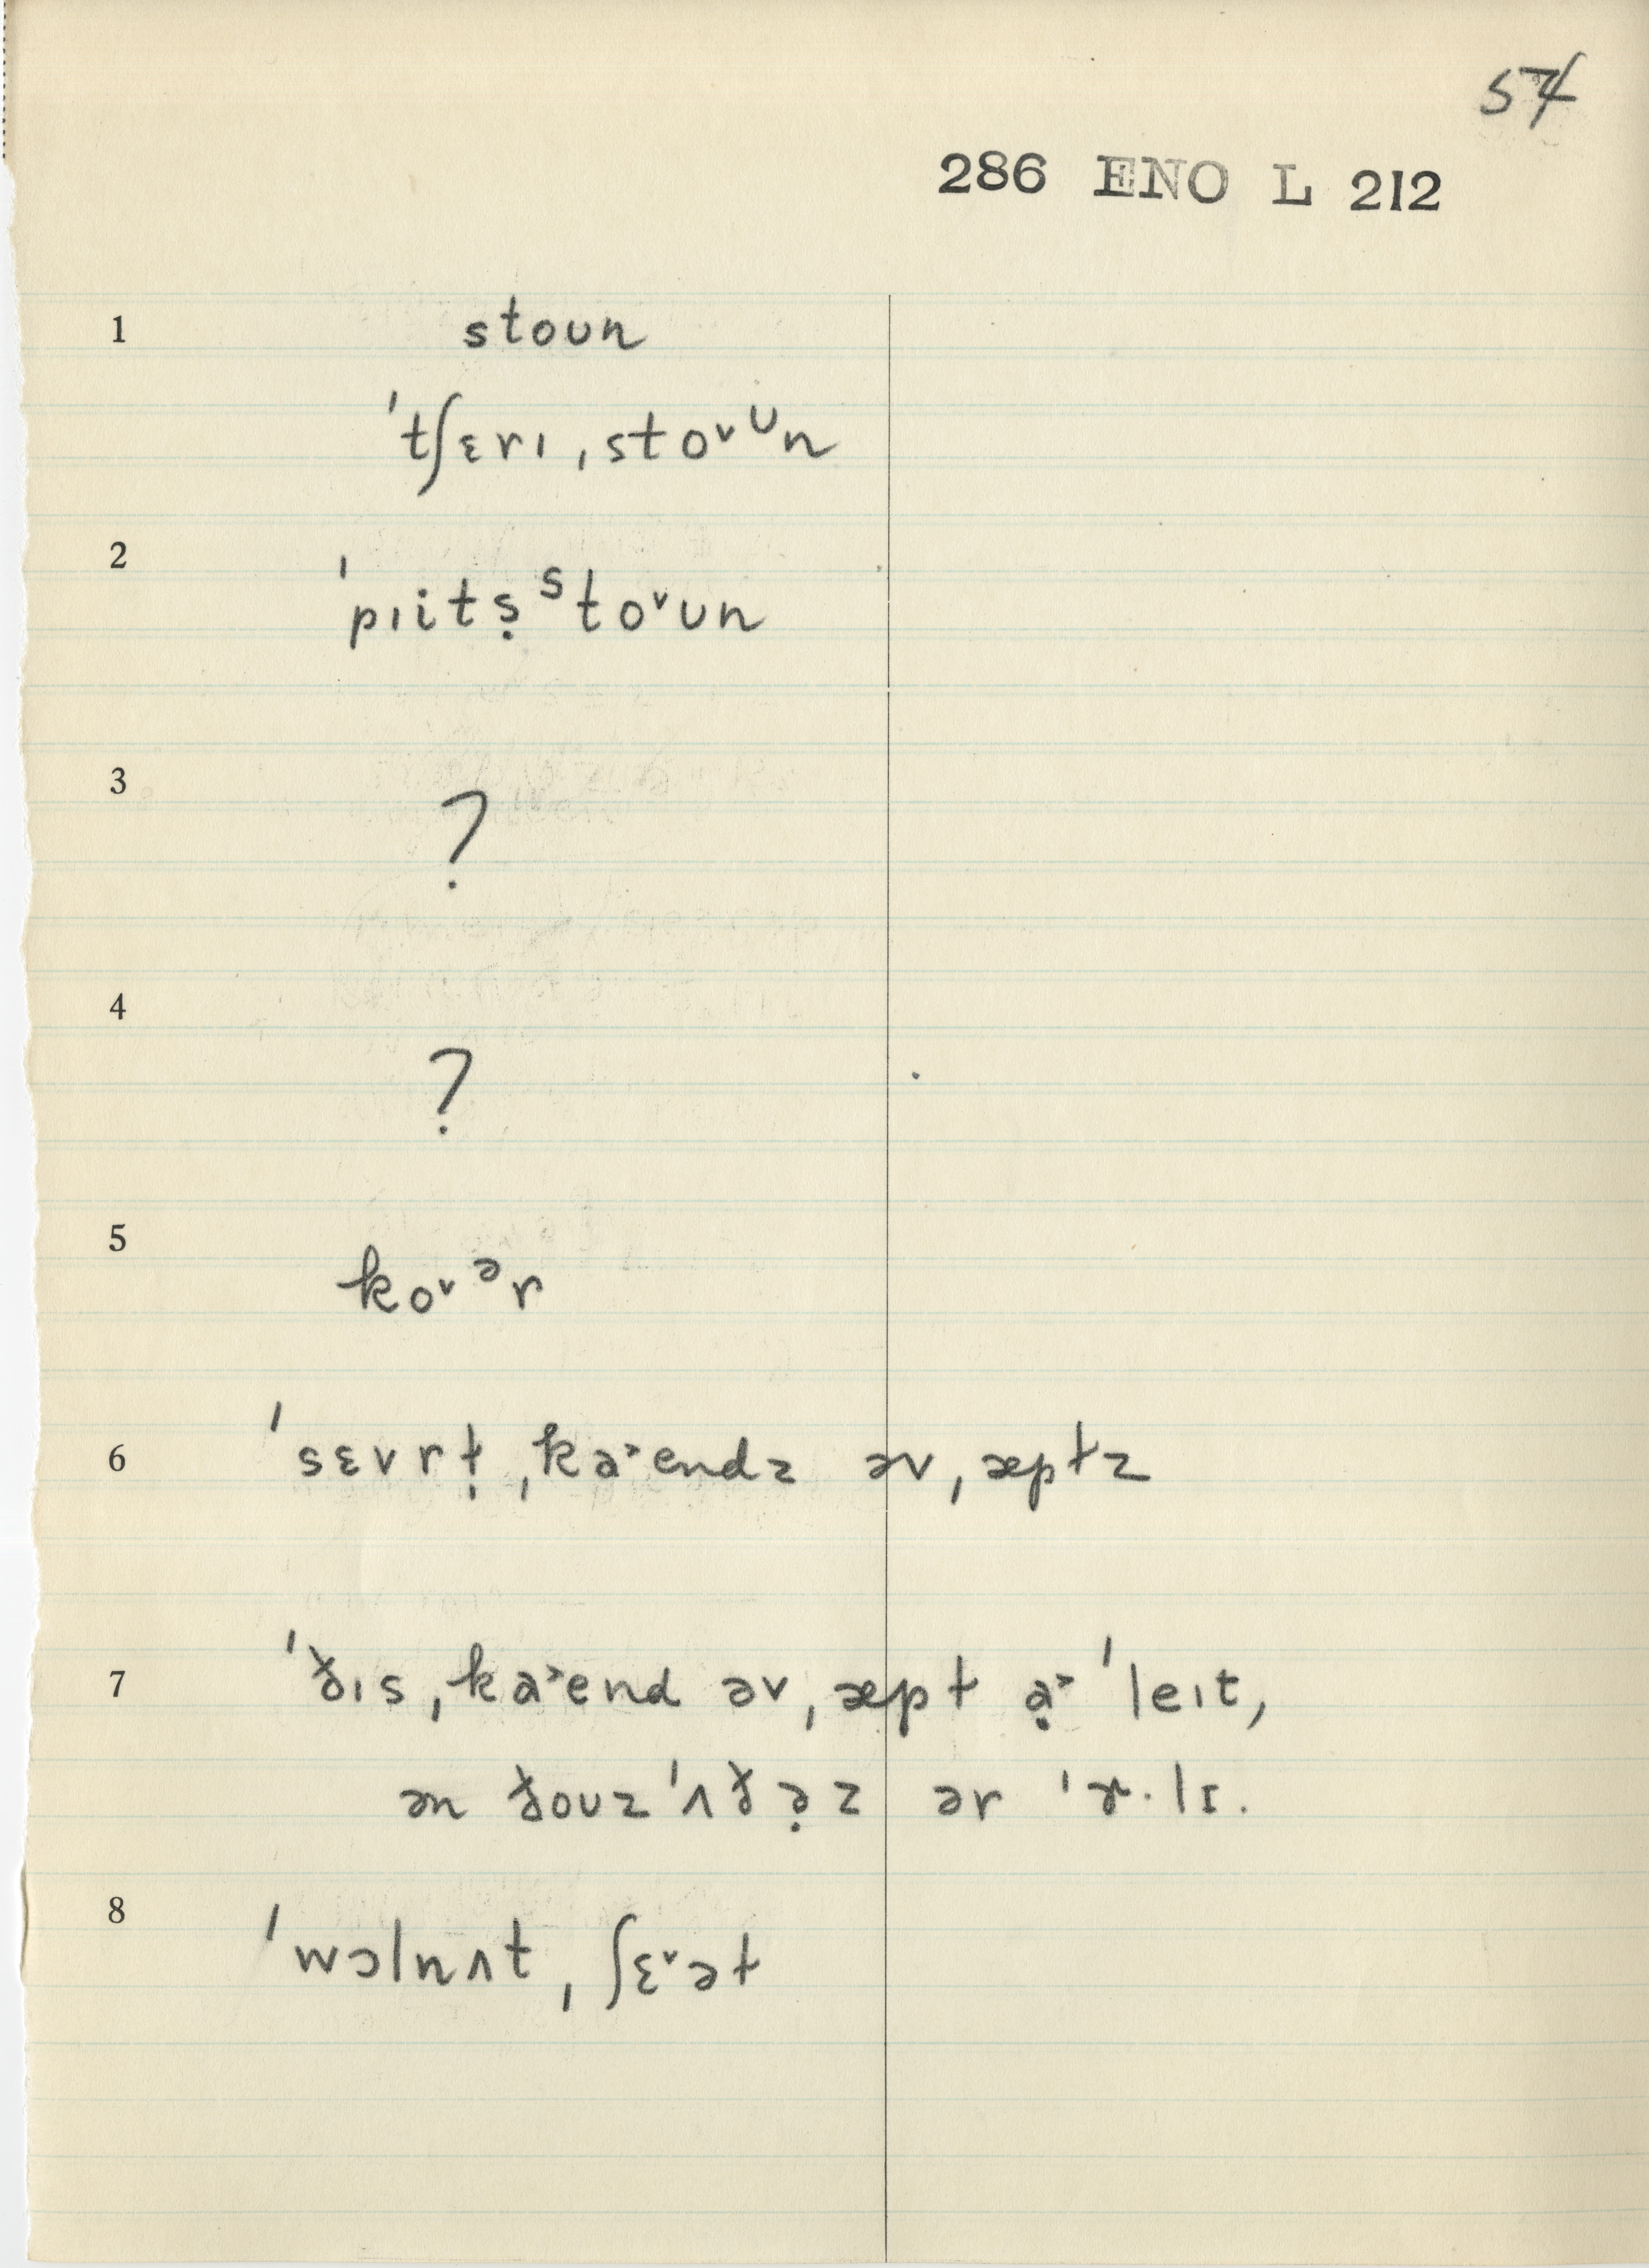 54
286 ENO L 212
1 stoun
ˈtʃɛrɪ ˌstoᵛᶷn
2 ˈpɪitṣ ˢtoᵛun
3 ?
4 ?
5 koᵛᵊr
6 ˈsɛvrt̩ ˌka˃endz əv ˌæptz
7 ˈðɪs ˌka˃end əv ˌæpt ạ˃ ˈleɪt,
ən ðouz ˈʌðə̣z ər ˈɚ·lɪ.
8 ˈwɔlnʌt ˌʃɛᵛət